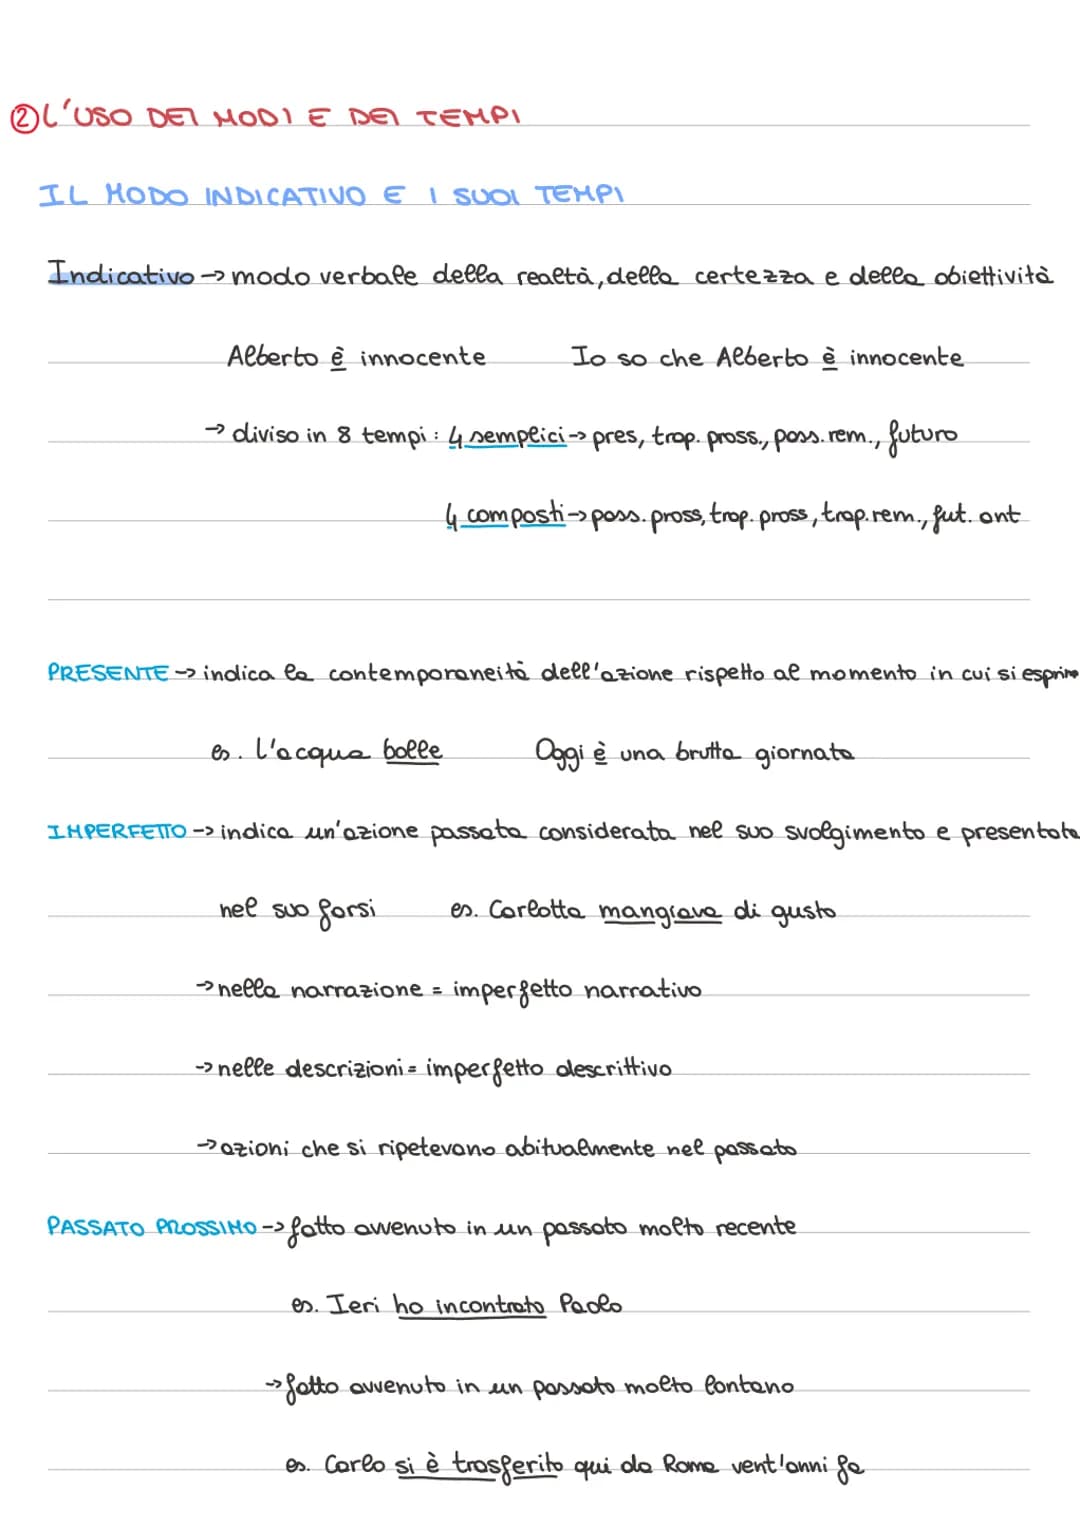 ② L'USO DEI MODI E DEI TEMPI
IL MODO INDICATIVO E I SUOI TEMPI
Indicativo → modo verbale della realtà, della certezza e della obiettività
Alberto è innocente Io so che Alberto è innocente
→ diviso in 8 tempi : 4 semplici → pres, trap. pross., pass. rem., futuro
4 composti → pass. pross, trap. pross, trap. rem., fut. ant
PRESENTE → indica la contemporaneità dell'azione rispetto al momento in cui si esprime
es. l'acqua bolle Oggi è una brutta giornata
IMPERFETTO → indica un'azione passata considerata nel suo svolgimento e presentata
nel suo farsi es. Carlotta mangiava di gusto
→ nella narrazione = imperfetto narrativo
→ nelle descrizioni = imperfetto descrittivo
→ azioni che si ripetevano abitualmente nel passato
PASSATO PROSSIMO → fatto avvenuto in un passato molto recente
es. Ieri ho incontrato Paolo
→ fatto avvenuto in un passato molto lontano
es. Carlo si è trasferito qui da Roma vent'anni fa